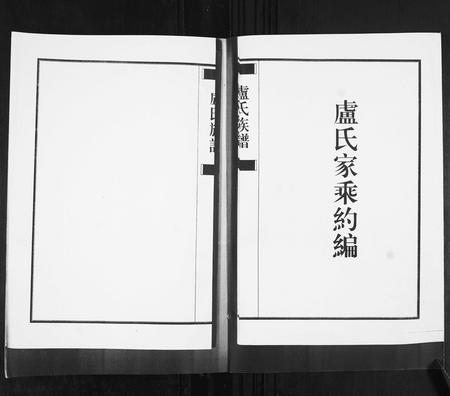 盧氏家乘約編
盧氏族譜
盧氏族譜